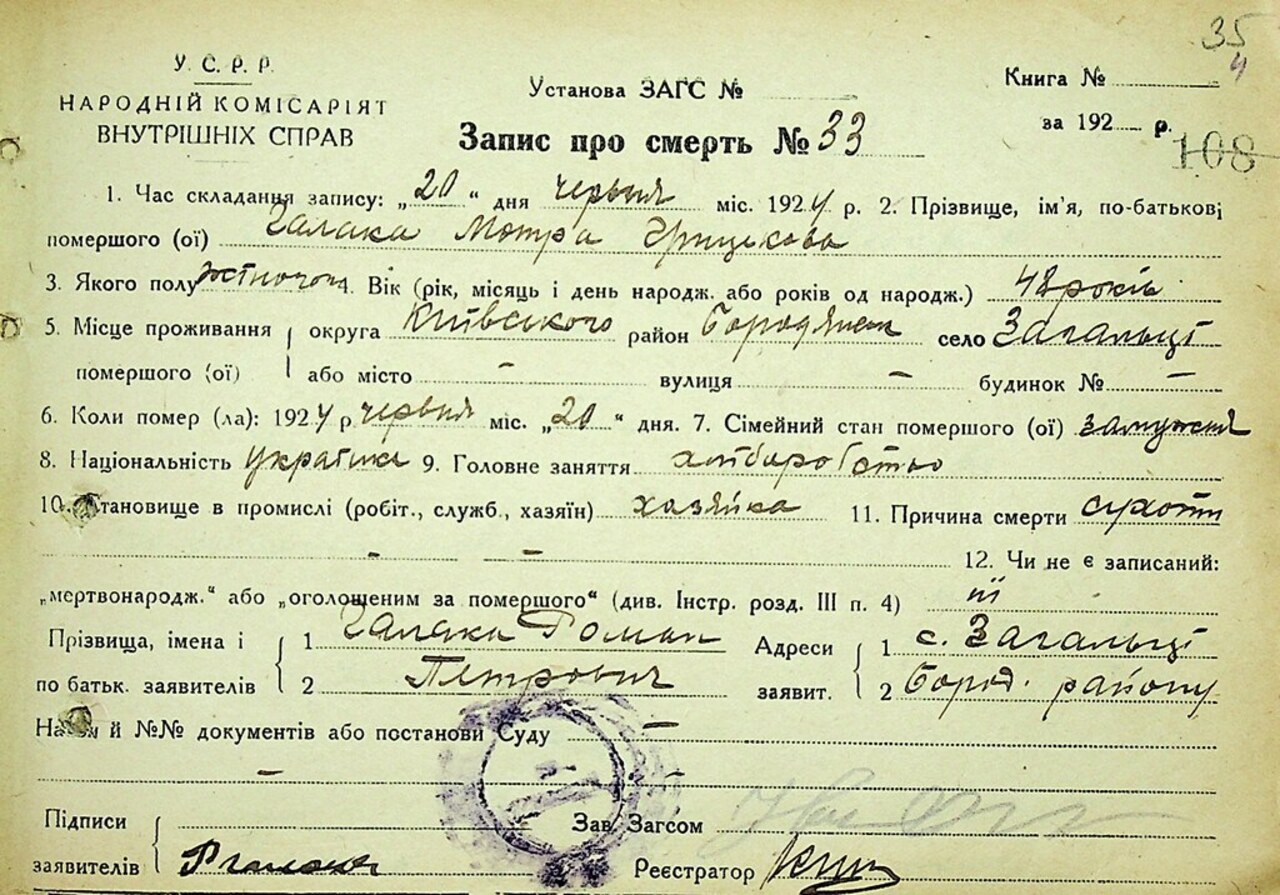 35
4
У. С. Р. Р.
НАРОДНІЙ КОМІСАРІЯТ
ВНУТРІШНІХ СПРАВ
Установа ЗАГС №
Книга №
за 192 р.
108
Запис про смерть № 33
1. Час складання запису: „20“ дня червня міс. 1924 р. 2. Прізвище, ім'я, по-батькові
помершого (ої) Галака Мотра Грицькова
3. Якого полу жіночого 4. Вік (рік, місяць і день народж. або років од народж.) 48 років
5. Місце проживання округа Київського район Бородянськ село Загальці
помершого (ої) або місто - вулиця - будинок № -
6. Коли помер (ла): 1924 р червня міс. „20“ дня. 7. Сімейний стан помершого (ої) замужня
8. Національність українка 9. Головне заняття хліборобство
10. Становище в промислі (робіт., служб., хазяїн) хазяйка 11. Причина смерти сухоти
- - 12. Чи не є записаний:
„мертвонародж.“ або „оголошеним за помершого“ (див. Інстр. розд. III п. 4) ні
Прізвища, імена і 1 Галака Роман Адреси 1 с. Загальці
по батьк. заявителів 2 Петрович заявит. 2 Бород. району
Назви й №№ документів або постанови Суду -
- -
Підписи Зав. Загсом
заявителів Р Галака Реєстратор